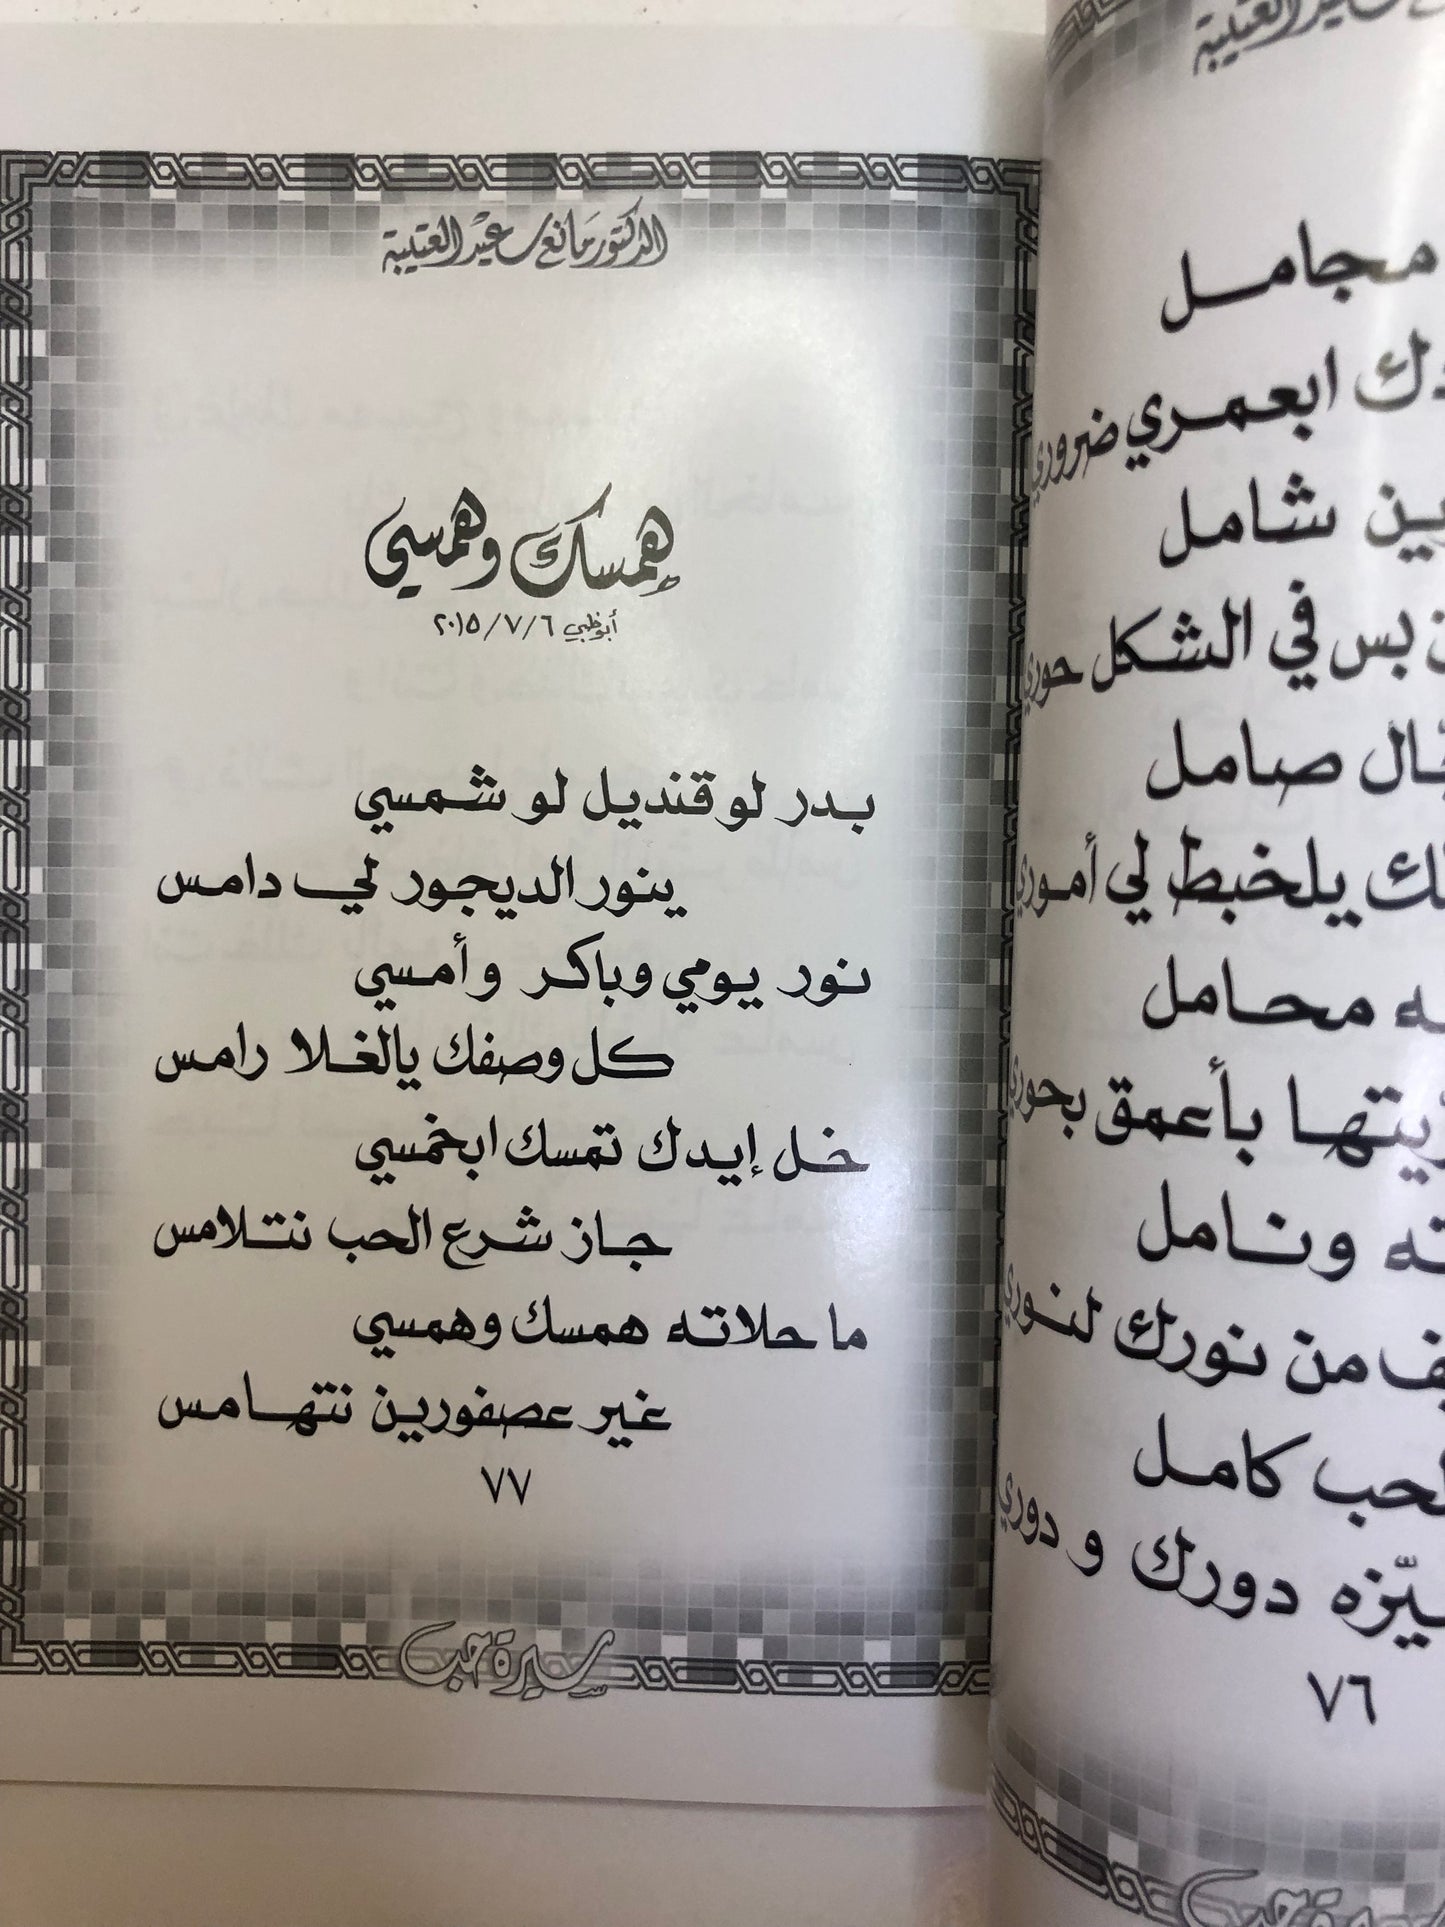 الدكتور مانع سعيد العتيبة
همسك وهمسي
أبوظبي ٢٠١٥/٧/٦
بدر لو قنديل لو شمسي
ينور الديجور لي دامس
نور يومي وباكر وأمسي
كل وصفك يالغلا رامس
خل إيدك تمسك ابخمسي
جاز شرع الحب نتلامس
ما حلاته همسك وهمسي
غير عصفورين نتهامس
٧٧
سيرة حب
العتيبة
مجامل
ابعمري ضروري
شامل
بس في الشكل حوري
صامل
يلخبط لي أموري
محامل
بأعمق بحوري
ونامل
من نورك لنوري
كامل
دورك و دوري
٧٦
سيرة حب